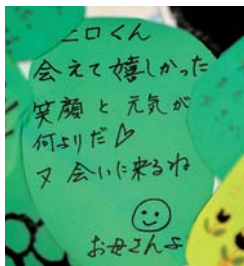 ニロくん
会えて嬉しかった
笑顔と元気が
何よりだ♡
又会いに来るね
お母さんよ